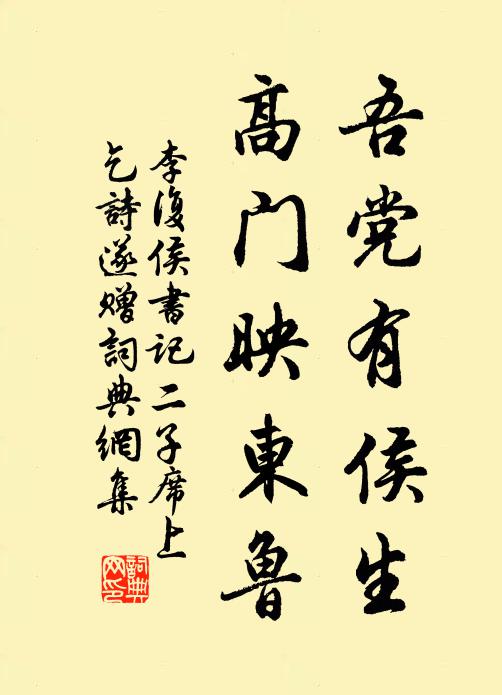 吾党有侯生
高门映東魯
李復侯書记二子席上
乞詩遂赠詞典網集
詞典
网印